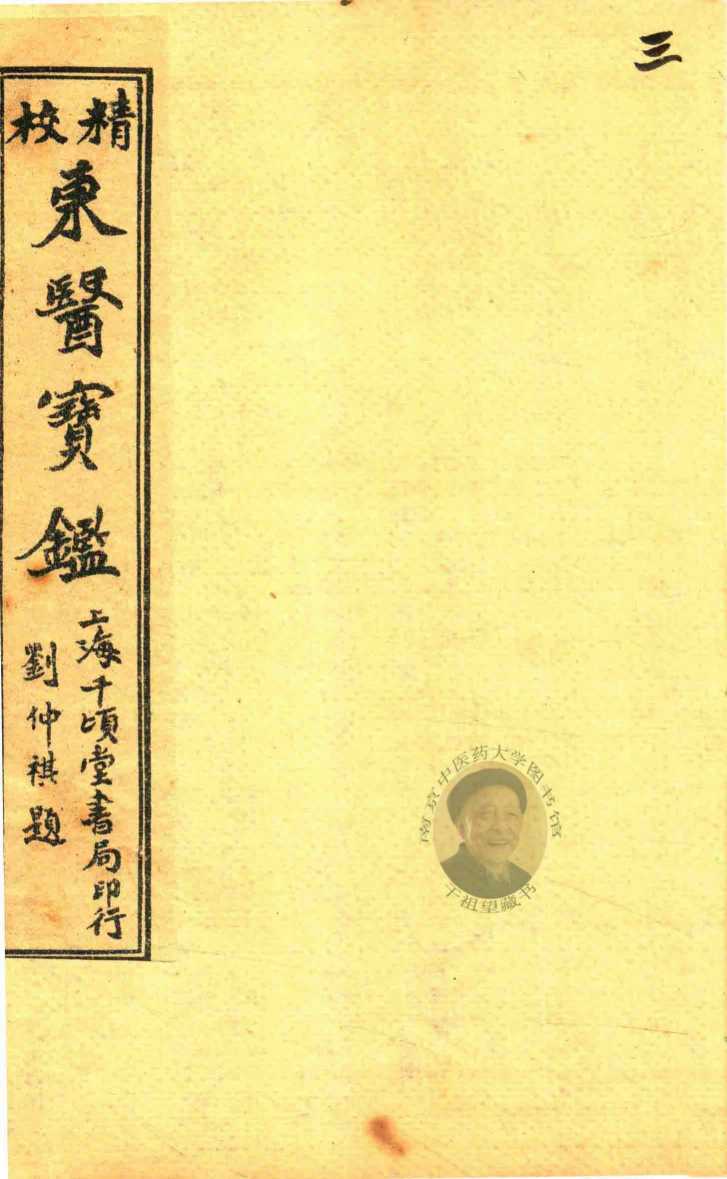 三
精校
東醫寶鑑
上海千頃堂書局印行
劉仲祺題
南京中医药大学图书馆
干祖望藏书